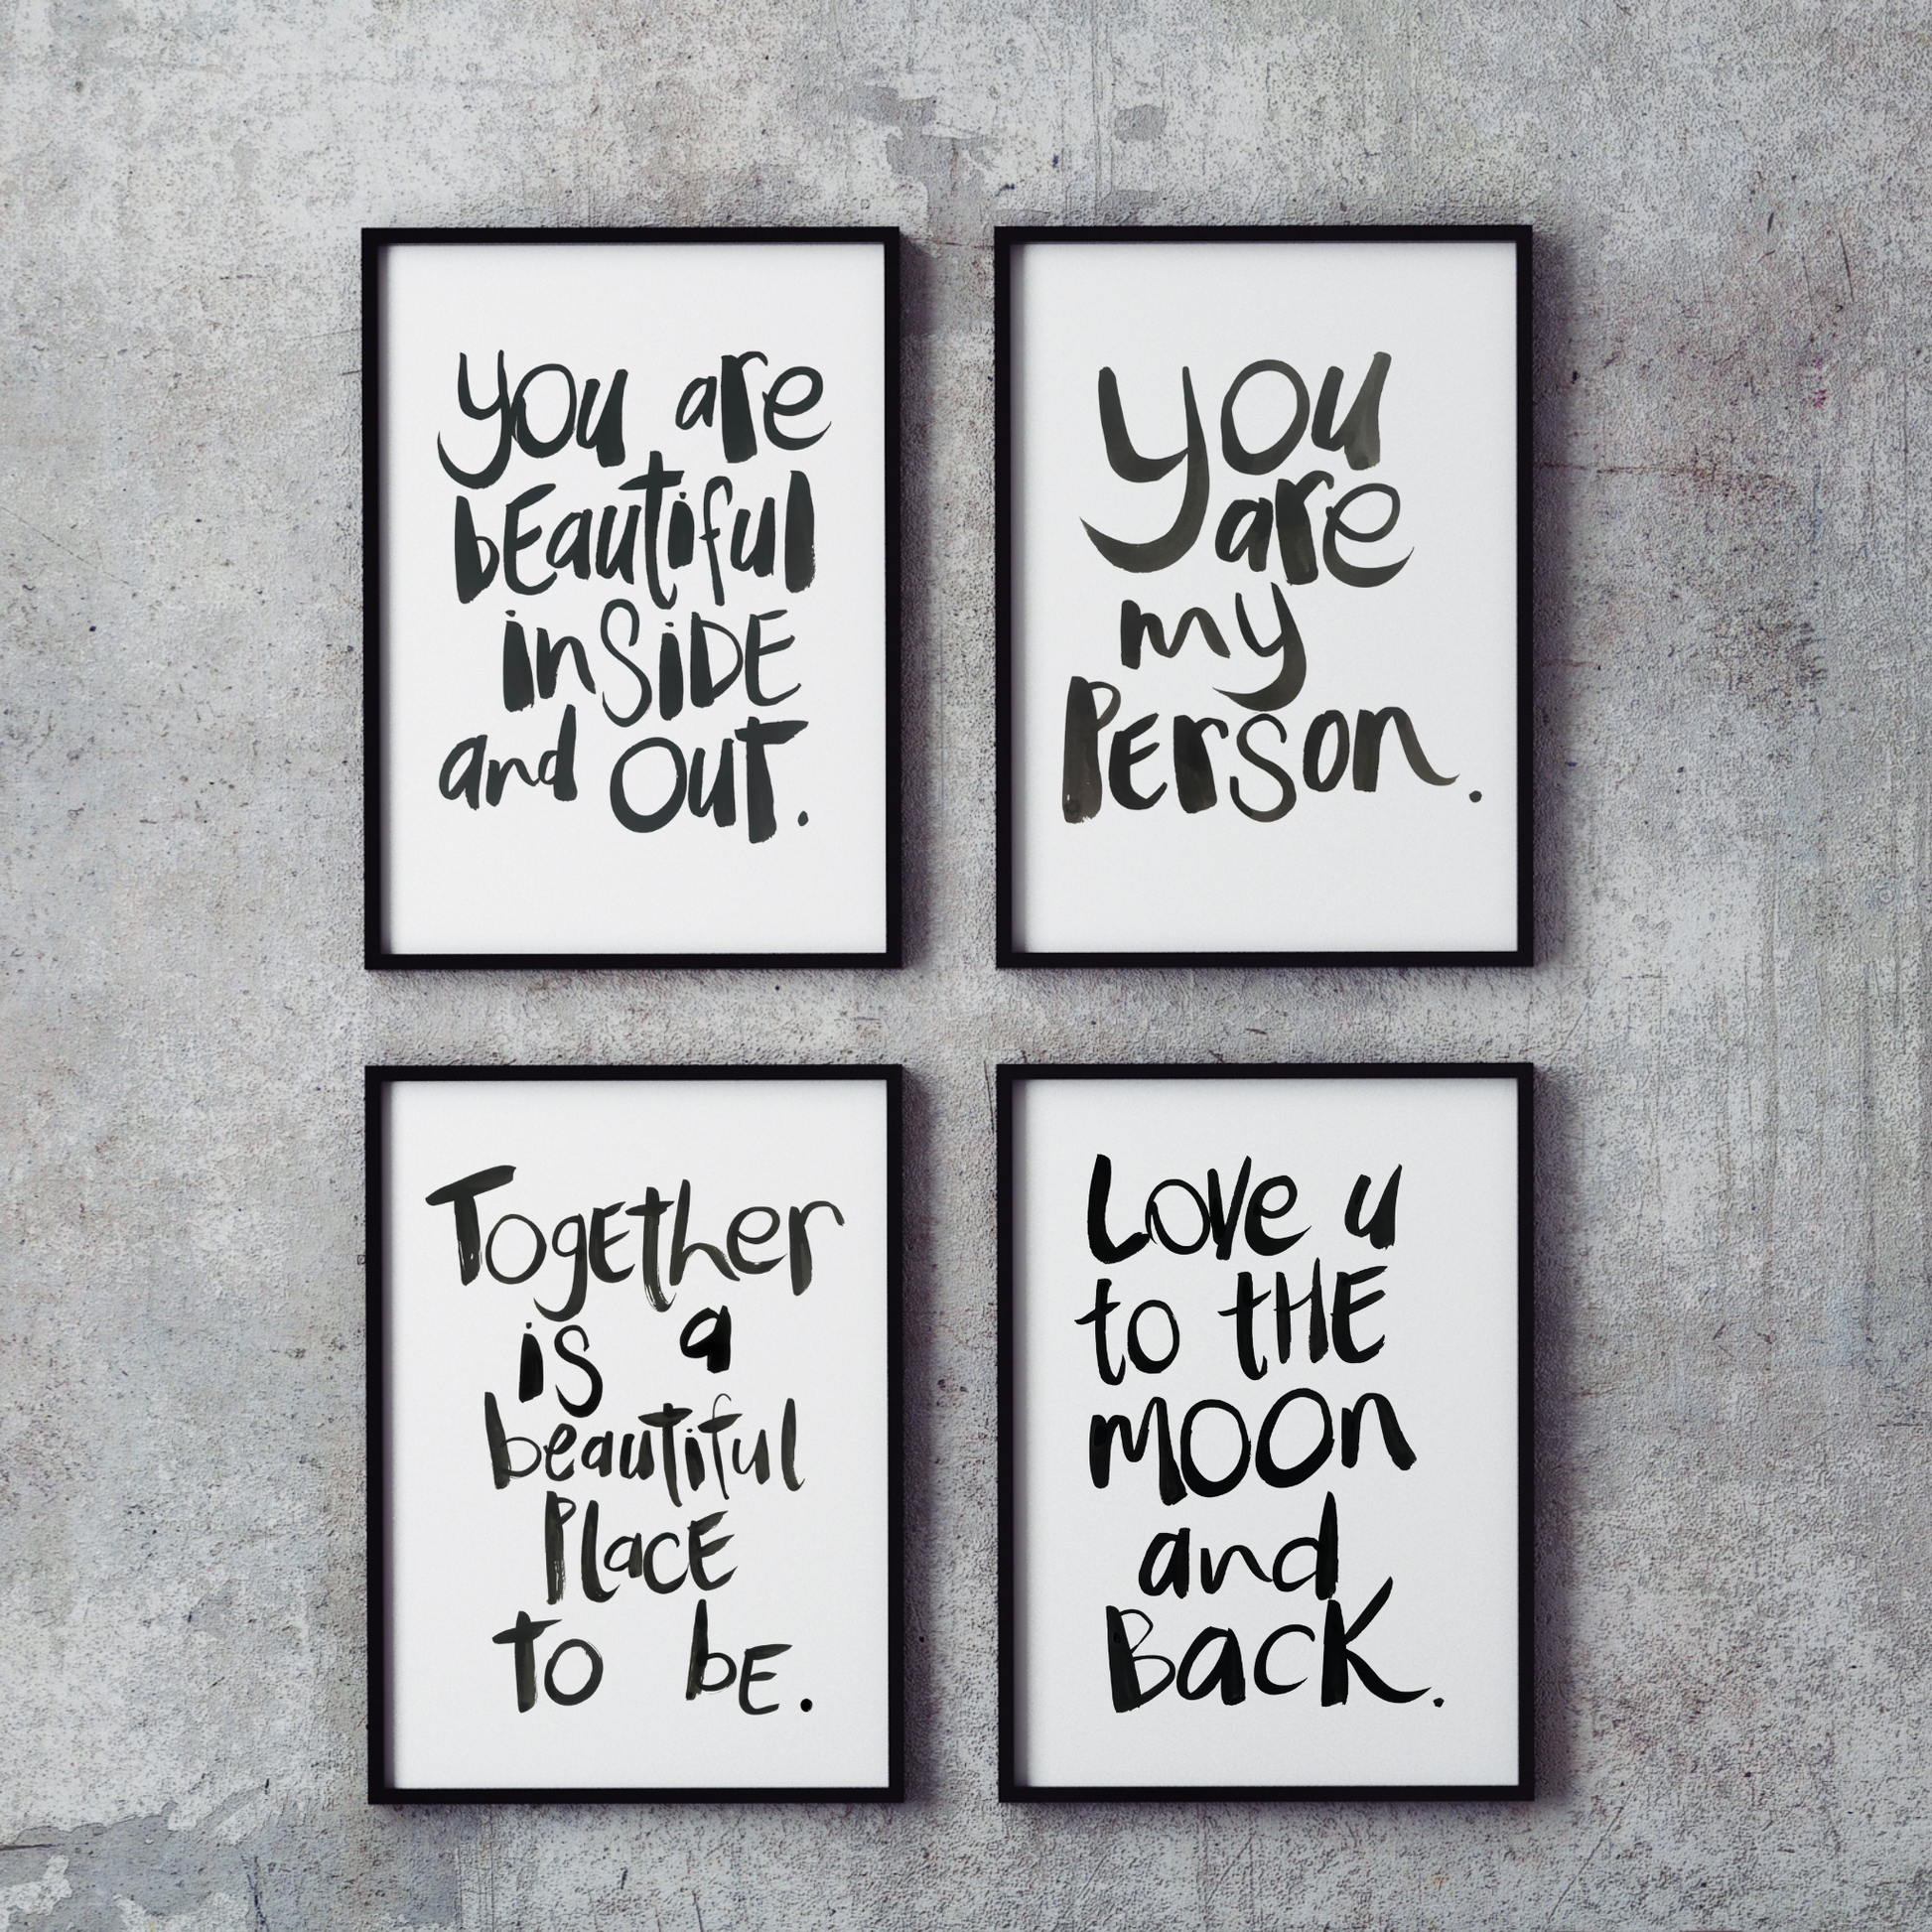 you are
bEautiful
inSiDE
and OuT.
you
are
my
PErson.
TogEther
is a
beautiful
PlacE
To bE.
Love u
to tHE
mOOn
and
BacK.